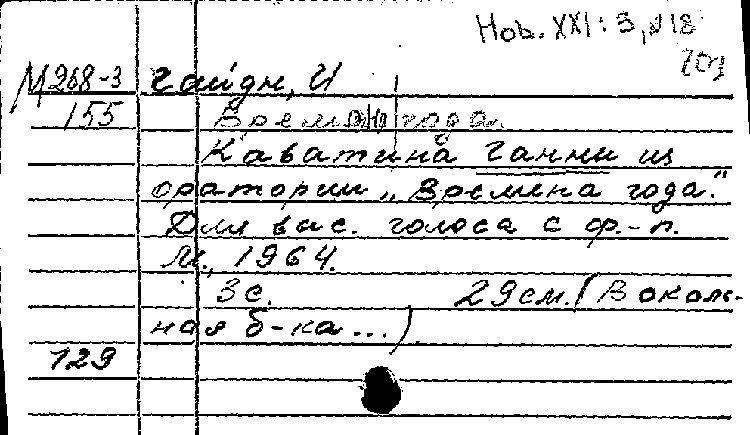 Hob. XXI: 3, №18
М268-3 Гайдн, И
155 Времена года.
Каватина Ганны из
оратории „Времена года."
Для выс. голоса с ф.-п.
М., 1964.
3с. 29см. (Вокаль-
ная б-ка...).
129